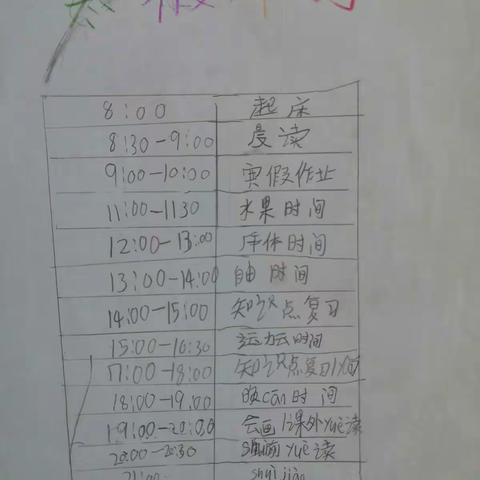 8:00 起床
8:30-9:00 晨读
9:00-10:00 寒假作业
11:00-1130 水果时间
12:00-13:00 午休时间
13:00-14:00 自由时间
14:00-15:00 知识点复习
15:00-16:30 运动时间
17:00-18:00 知识点复习
18:00-19:00 晚cān时间
19:00-20:00 会画/课外yuè读
20:00-20:30 yuè读
21:00 shuì jiào